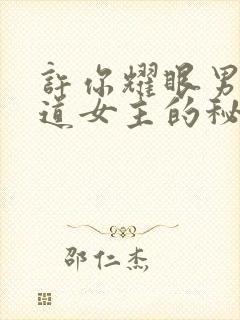 許你耀眼男
道女主的秘
邵仁杰